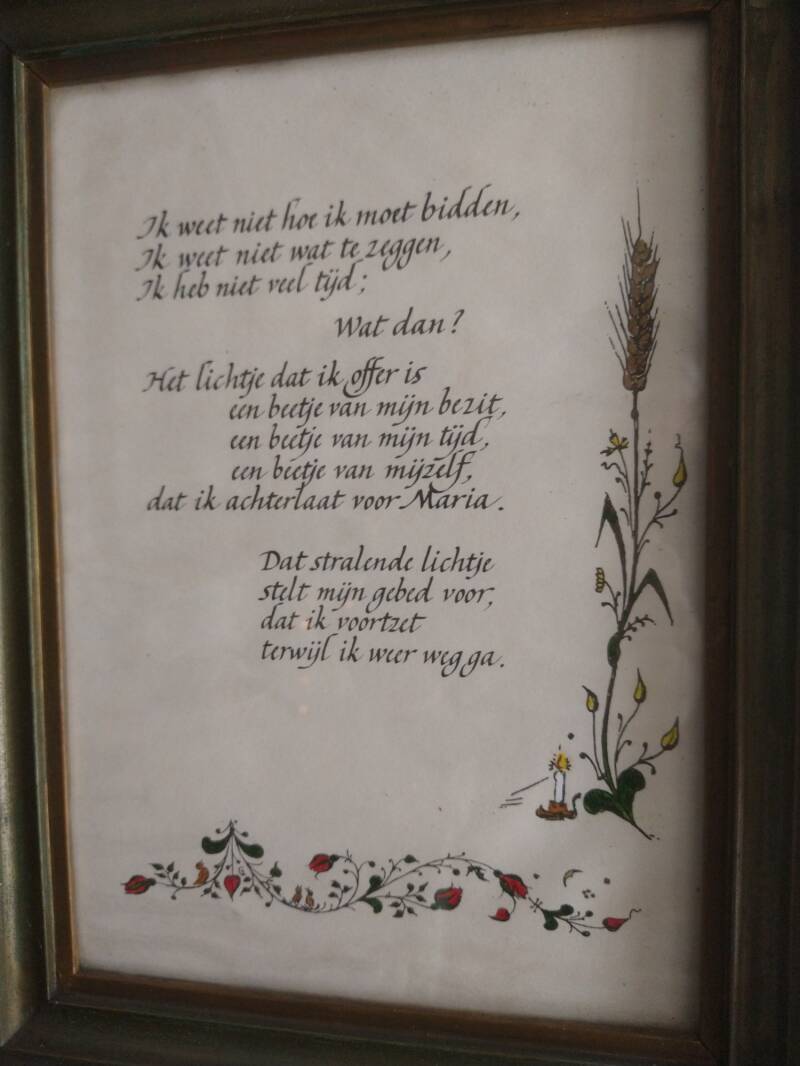 Ik weet niet hoe ik moet bidden,
Ik weet niet wat te zeggen,
Ik heb niet veel tijd;
Wat dan?
Het lichtje dat ik offer is
een beetje van mijn bezit,
een beetje van mijn tijd,
een beetje van mijzelf,
dat ik achterlaat voor Maria.
Dat stralende lichtje
stelt mijn gebed voor,
dat ik voortzet
terwijl ik weer wegga.